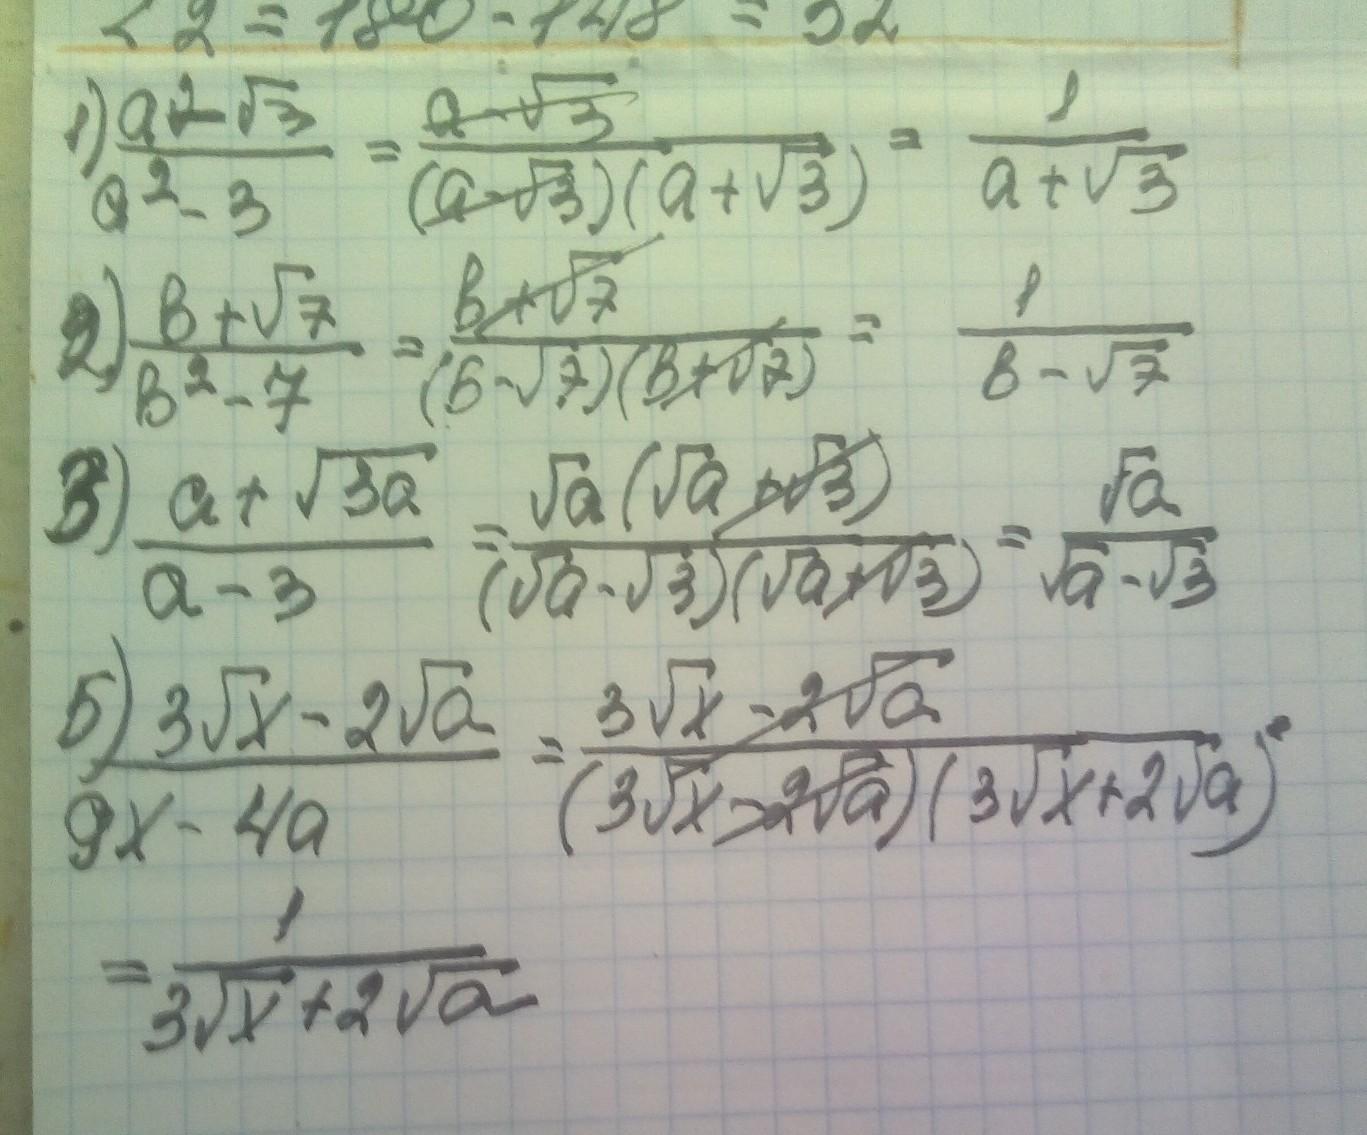 ∠2 = 180 - 148 = 32
1) (a - √3)/(a² - 3) = (a - √3)/((a - √3)(a + √3)) = 1/(a + √3)
2) (в + √7)/(в² - 7) = (в + √7)/((в - √7)(в + √7)) = 1/(в - √7)
3) (a + √3a)/(a - 3) = √a(√a + √3)/((√a - √3)(√a + √3)) = √a/(√a - √3)
5) (3√x - 2√a)/(9x - 4a) = (3√x - 2√a)/((3√x - 2√a)(3√x + 2√a)) =
= 1/(3√x + 2√a)